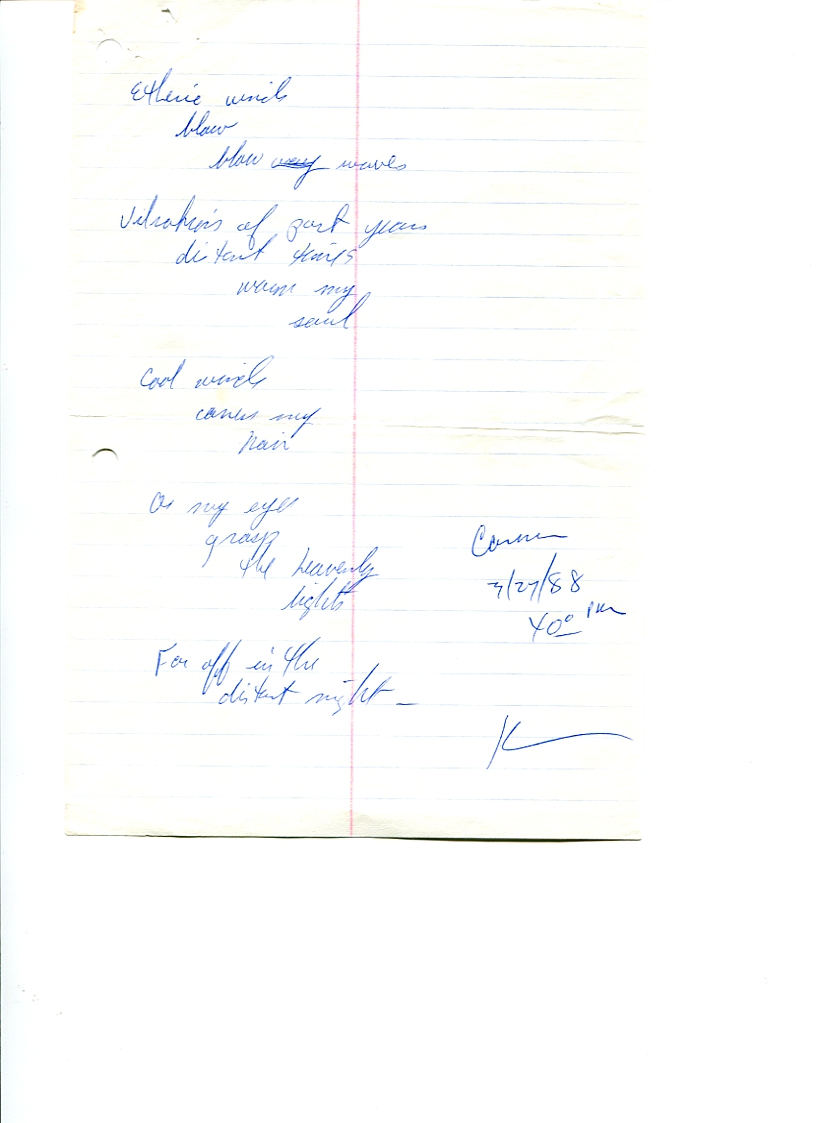 Etheric winds
blow
blow waves
Vibrations of past years
distant times
warm my
soul
Cool winds
caress my
hair
As my eyes
grasp
the heavenly
lights
Far off in the
distant night –
3/27/88
4:00 PM